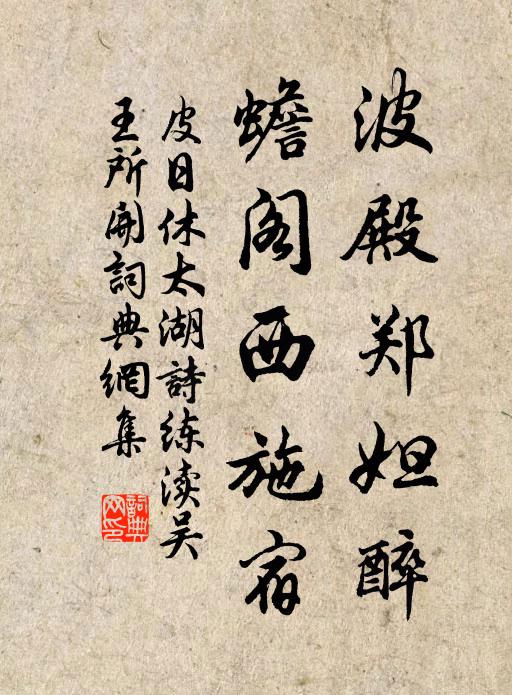 波殿郑妲醉
蟾阁西施宿
皮日休太湖詩练渎吴
王所開詞典網集
詞典网印